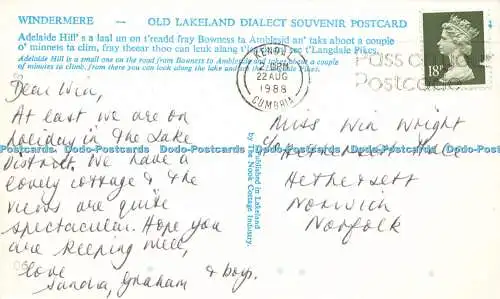 WINDERMERE — OLD LAKELAND DIALECT SOUVENIR POSTCARD
Adelaide Hill's a laal un on t'readd fray Bowness ta Amblesid an' taks about a couple
o' minnets ta clim, fray theear thoo can leuk alang t' t'Langdale Pikes.
Adelaide Hill is a small one on the road from Bowness to Ambleside and takes about a couple
of minutes to climb. From there you can look along the lake and the Langdale Pikes.
KENDAL
2 PM
22 AUG
1988
CUMBRIA
Pass on
Postcode
18P
Dear Win,
At last we are on
holiday in the Lake
District. We have a
lovely cottage & the
views are quite
spectacular. Hope you
are keeping well,
love
Sandra, Graham & boys.
Published in Lakeland
by The Nook Cottage Industry.
Miss Win Wright
Hethersett
Hethersett
Norwich
Norfolk
Dodo-Postcards Dodo-Postcards Dodo-Postcards Dodo-Postcards Dodo-Postcards